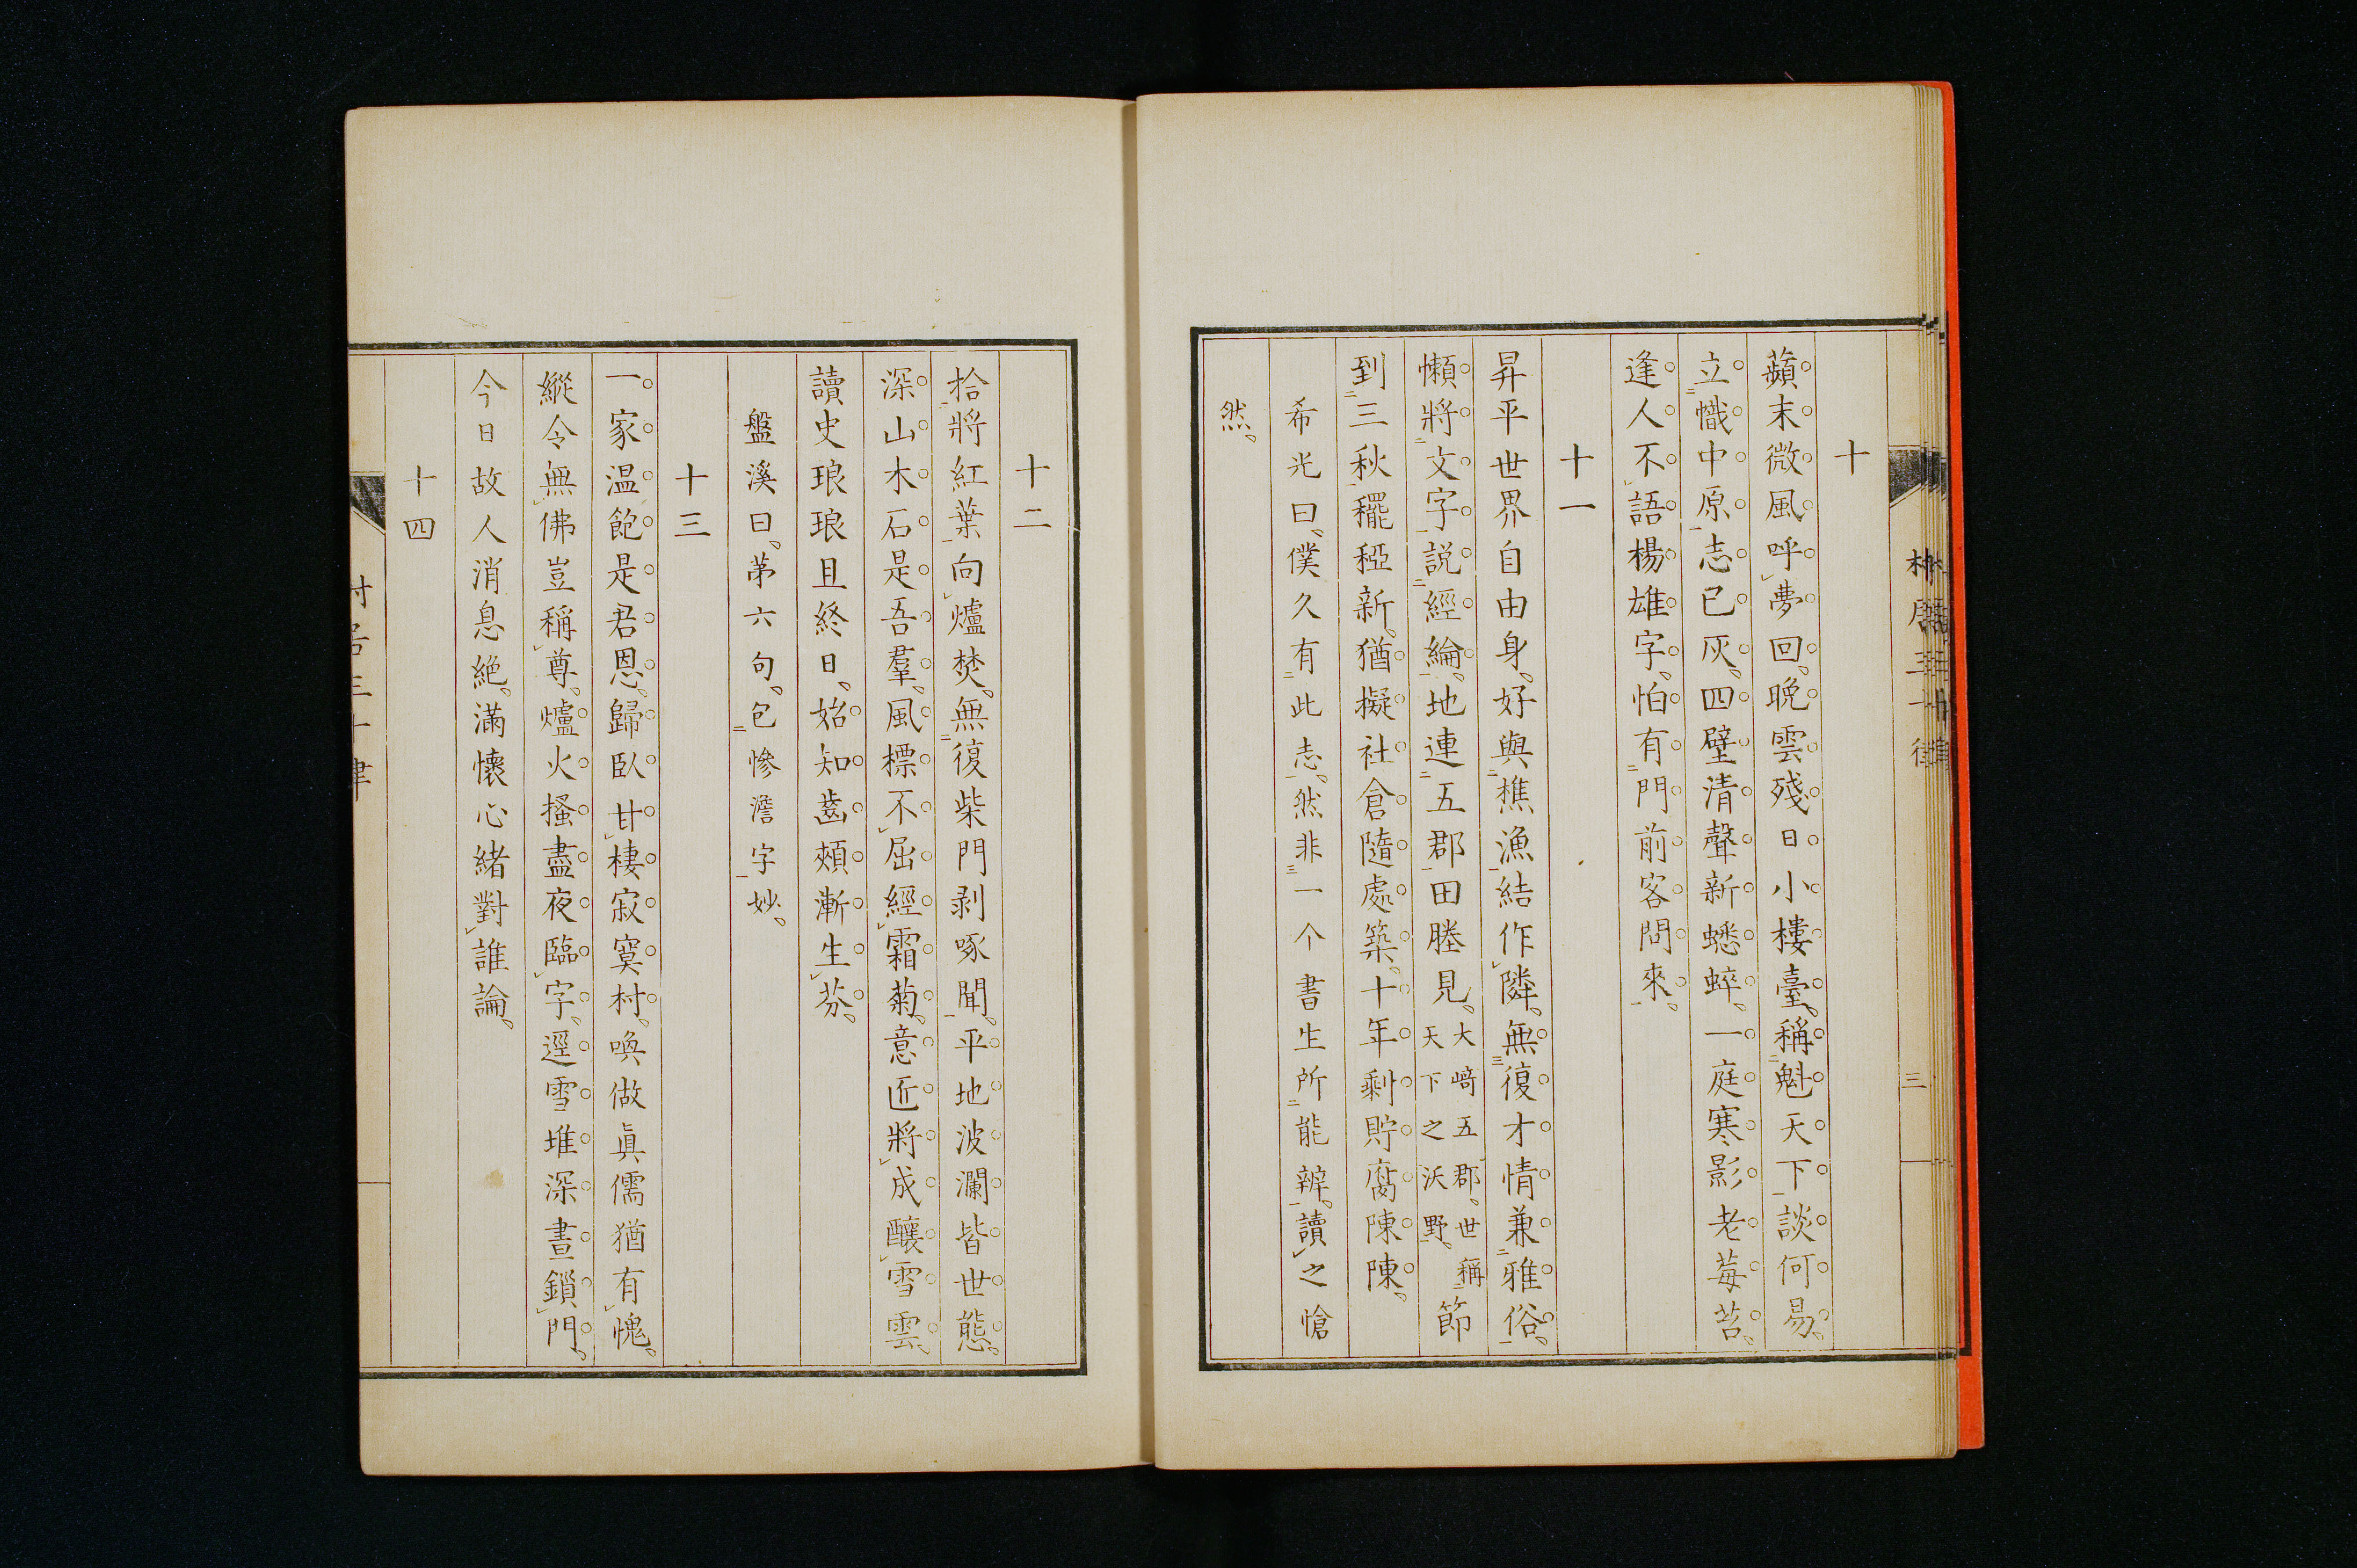 十
蘋末微風呼夢回。晩雲殘日小樓臺。稱魁天下談何易。
立幟中原志已灰。四壁清聲新蟋蟀。一庭寒影老莓苔。
逢人不語楊雄字。怕有門前客問來。
十一
昇平世界自由身。好與樵漁結作隣。無復才情兼雅俗。
懶將文字説經綸。地連五郡田塍見。大﨑五郡。世稱天下之沃野。節
到三秋䆉稏新。猶擬社倉隨處築。十年剩貯腐陳陳。
希光曰。僕久有此志。然非一个書生所能辨。讀之愴
然。
三
十二
拾將紅葉向爐焚。無復柴門剥啄聞。平地波瀾皆世態。
深山木石是吾羣。風標不屈經霜菊。意匠將成釀雪雲。
讀史琅琅且終日。始知齒頰漸生芬。
盤溪曰。第六句。包慘澹字妙。
十三
一家温飽是君恩。歸臥甘棲寂寞村。喚做眞儒猶有愧。
縱令無佛豈稱尊。爐火搔盡夜臨字。逕雪堆深晝鎖門。
今日故人消息絶。滿懷心緒對誰論。
十四
村居三十律